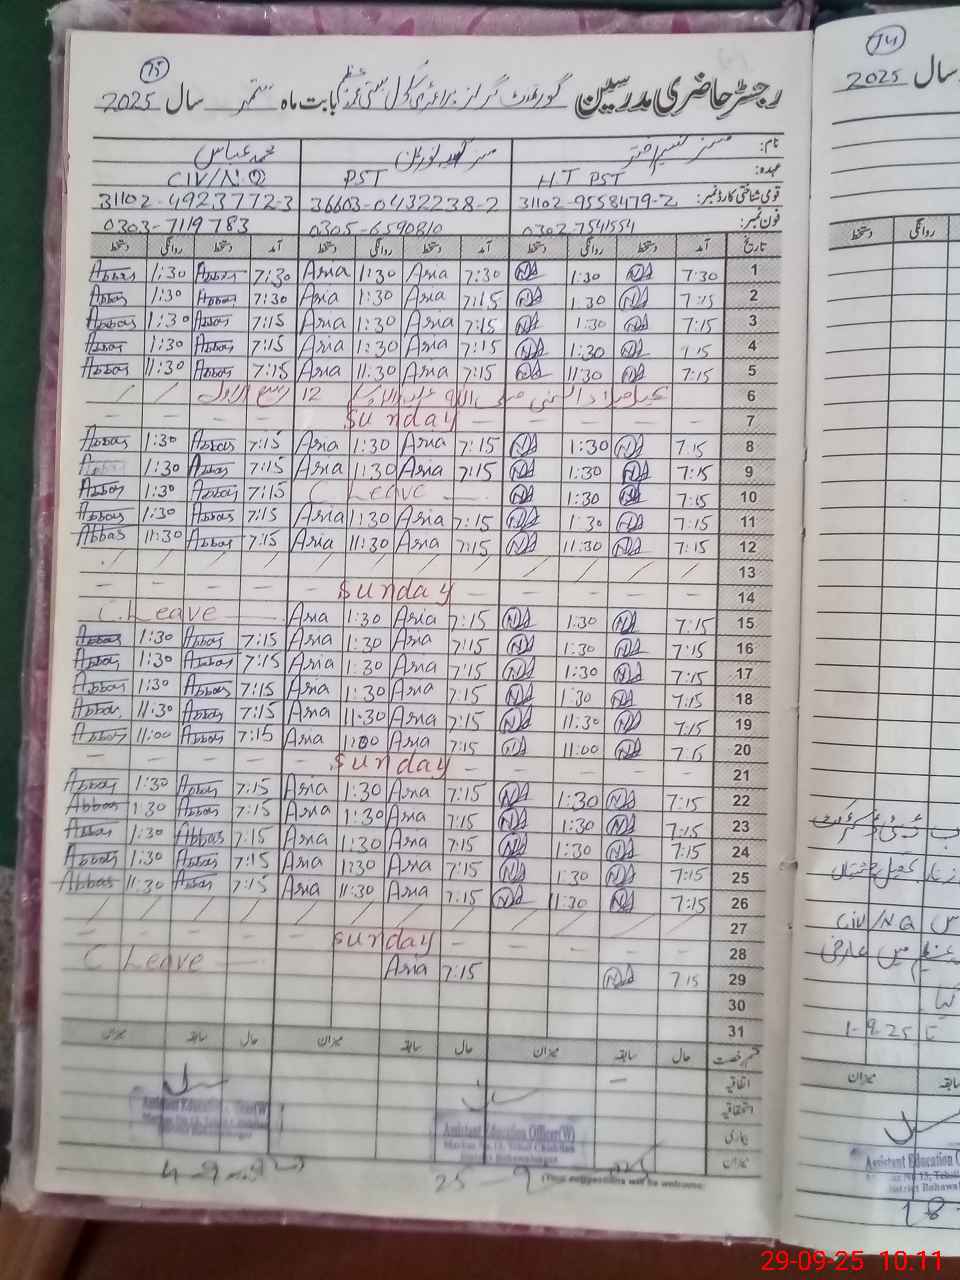 75
رجسٹر حاضری مدرسین گورنمنٹ گرلز پرائمری سکول بستی بابت ماہ ستمبر سال 2025
نام: مسز نسیم اختر مسز نورین محمد عباس
عہدہ: H.T PST PST CIV/N.Q
قومی شناختی کارڈ نمبر: 31102-9558479-2 36603-0432238-2 31102-4923772-3
فون نمبر: 0302-7541554 0305-6590810 0303-7119783
تاریخ آمد دستخط روانگی دستخط آمد دستخط روانگی دستخط آمد دستخط روانگی دستخط
Abbas 1:30 Abbas 7:30 Asia 1:30 Asia 7:30 1:30 7:30 1
Abbas 1:30 Abbas 7:30 Asia 1:30 Asia 7:15 1:30 7:15 2
Abbas 1:30 Abbas 7:15 Asia 1:30 Asia 7:15 1:30 7:15 3
Abbas 1:30 Abbas 7:15 Asia 1:30 Asia 7:15 1:30 7:15 4
Abbas 11:30 Abbas 7:15 Asia 11:30 Asia 7:15 11:30 7:15 5
عید میلاد النبی صلی اللہ علیہ وآلہ وسلم 12 ربیع الاول 6
Sunday 7
Abbas 1:30 Abbas 7:15 Asia 1:30 Asia 7:15 1:30 7:15 8
Abbas 1:30 Abbas 7:15 Asia 1:30 Asia 7:15 1:30 7:15 9
Abbas 1:30 Abbas 7:15 C Leave 1:30 7:15 10
Abbas 1:30 Abbas 7:15 Asia 1:30 Asia 7:15 1:30 7:15 11
Abbas 11:30 Abbas 7:15 Asia 11:30 Asia 7:15 11:30 7:15 12
13
Sunday 14
C. Leave Asia 1:30 Asia 7:15 1:30 7:15 15
Abbas 1:30 Abbas 7:15 Asia 1:30 Asia 7:15 1:30 7:15 16
Abbas 1:30 Abbas 7:15 Asia 1:30 Asia 7:15 1:30 7:15 17
Abbas 1:30 Abbas 7:15 Asia 1:30 Asia 7:15 1:30 7:15 18
Abbas 11:30 Abbas 7:15 Asia 11:30 Asia 7:15 11:30 7:15 19
Abbas 11:00 Abbas 7:15 Asia 11:00 Asia 7:15 11:00 20
Sunday 21
Abbas 1:30 Abbas 7:15 Asia 1:30 Asia 7:15 1:30 7:15 22
Abbas 1:30 Abbas 7:15 Asia 1:30 Asia 7:15 1:30 7:15 23
Abbas 1:30 Abbas 7:15 Asia 1:30 Asia 7:15 1:30 7:15 24
Abbas 1:30 Abbas 7:15 Asia 1:30 Asia 7:15 1:30 7:15 25
Abbas 11:30 Abbas 7:15 Asia 11:30 Asia 7:15 11:30 7:15 26
27
Sunday 28
C Leave Asia 7:15 7:15 29
30
31
قسم رخصت حال سابقہ میزان حال سابقہ میزان حال سابقہ میزان
اتفاقیہ
استحقاقیہ
بیماری
میزان
Assistant Education Officer(W)
Markaz No.13, Tehsil Chishtian
District Bahawalnagar
Assistant Education Officer(W)
Markaz No.13, Tehsil Chishtian
District Bahawalnagar
(Your suggestions will be welcome)
74
سال 2025
روانگی دستخط
CIV/NQ
میں عارضی
1-9-25 تا
میزان
Assistant Education
No 13, Tehsil
District Bahawal
29-09-25 10.11